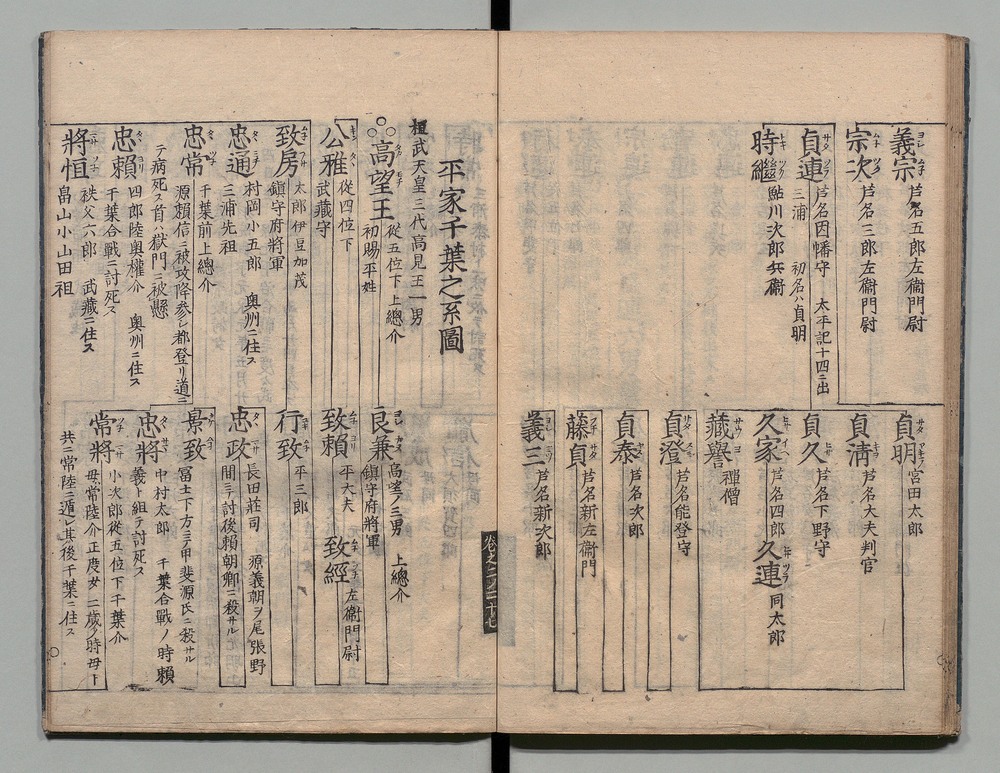 義宗 芦名五郎左衞門尉
宗次 芦名三郎左衞門尉
貞連 芦名因幡守 太平記十四ニ出
三浦 初名ハ貞明
時繼 鮎川次郎兵衞
貞明 宮田太郎
貞淸 芦名大夫判官
貞久 芦名下野守
久家 芦名四郎 久連 同太郎
藏譽 禪僧
貞澄 芦名能登守
貞泰 芦名次郎
藤貞 芦名新左衞門
義三 芦名新次郎
卷之二ノ二十七
平家千葉之系圖
桓武天皇三代高見王一男
高望王 從五位下上總介
初賜平姓
公雅 從四位下
武藏守
致房 太郎伊豆加茂
鎭守府將軍
忠通 村岡小五郎 奥州ニ住ス
三浦先祖
忠常 千葉前上總介
源賴信ニ被攻降参シ都登リ道ニ
テ病死ス首ハ獄門ニ被懸
忠賴 四郎陸奥權介 奥州ニ住ス
千葉合戰ニ討死ス
將恒 秩父六郎 武藏ニ住ス
畠山小山田祖
良兼 高望ノ三男 上總介
鎭守府將軍
致賴 平大夫 致經 左衞門尉
行致 平三郎
忠政 長田莊司 源義朝ヲ尾張野
間ニテ討後賴朝卿ニ殺サル
景致 冨士下方ニテ甲斐源氏ニ殺サル
忠將 中村太郎 千葉合戰ノ時賴
義ト組テ討死ス
常將 小次郎從五位下千葉介
母常陸介正度女 二歳ノ時母ト
共ニ常陸ニ遁レ其後千葉ニ住ス